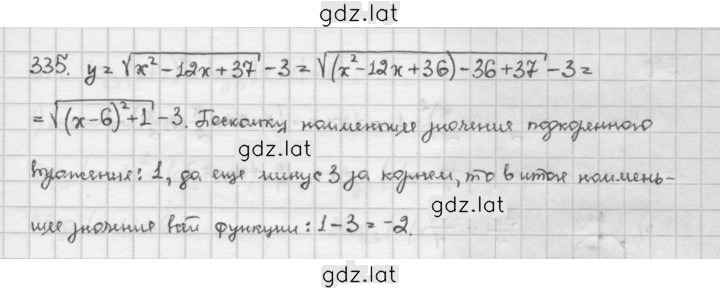 gdz.lat
335. y = √(x² - 12x + 37) - 3 = √((x² - 12x + 36) - 36 + 37) - 3 =
= √((x - 6)² + 1) - 3. Поскольку наименьшее значения подкоренного
gdz.lat
выражения: 1, да еще минус 3 за корнем, то в итоге наимень-
gdz.lat
шее значения всей функции: 1 - 3 = -2.
gdz.lat